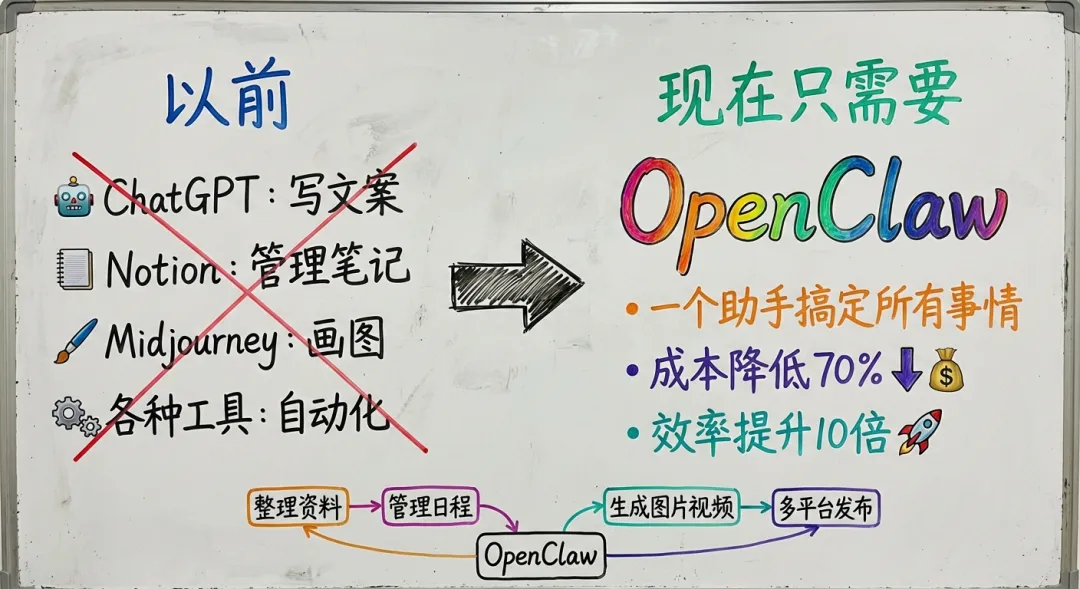 以前
ChatGPT：写文案
Notion：管理笔记
Midjourney：画图
各种工具：自动化
现在只需要
OpenClaw
• 一个助手搞定所有事情
• 成本降低70%
• 效率提升10倍
整理资料
管理日程
生成图片视频
多平台发布
OpenClaw